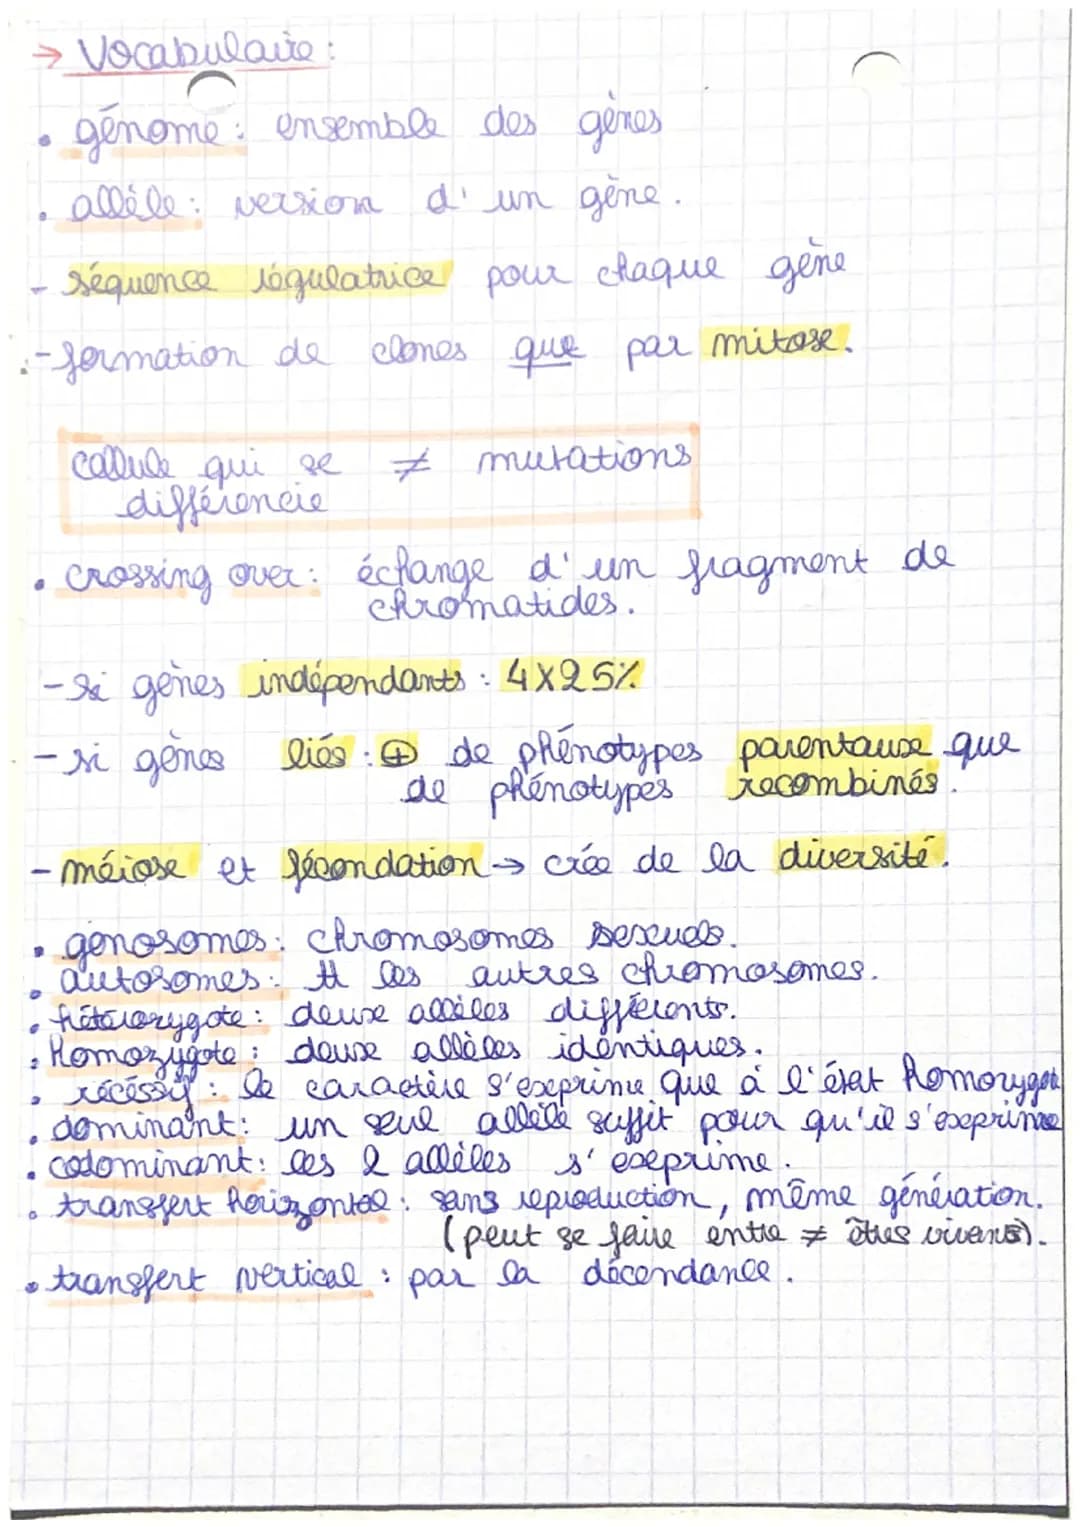 → Vocabulaire :
• génome : ensemble des gènes
• allèle : version d'un gène.
- séquence régulatrice pour chaque gène
- formation de clones que par mitose.
cellule qui se ≠ mutations
différencie
• crossing over : échange d'un fragment de
chromatides.
- si gènes indépendants : 4x25%
- si gènes liés : ⊕ de phénotypes parentaux que
de phénotypes recombinés.
- méiose et fécondation → crée de la diversité.
• gonosomes : chromosomes sexuels.
• autosomes : tt les autres chromosomes.
• hétérozygote : deux allèles différents.
• Homozygote : deux allèles identiques.
• récéssif : le caractère s'exprime que à l'état homozygote
• dominant : un seul allèle suffit pour qu'il s'exprime
• codominant : les 2 allèles s'exprime.
• transfert horizontal : sans reproduction, même génération.
(peut se faire entre ≠ êtres vivants).
• transfert vertical : par la décendance.